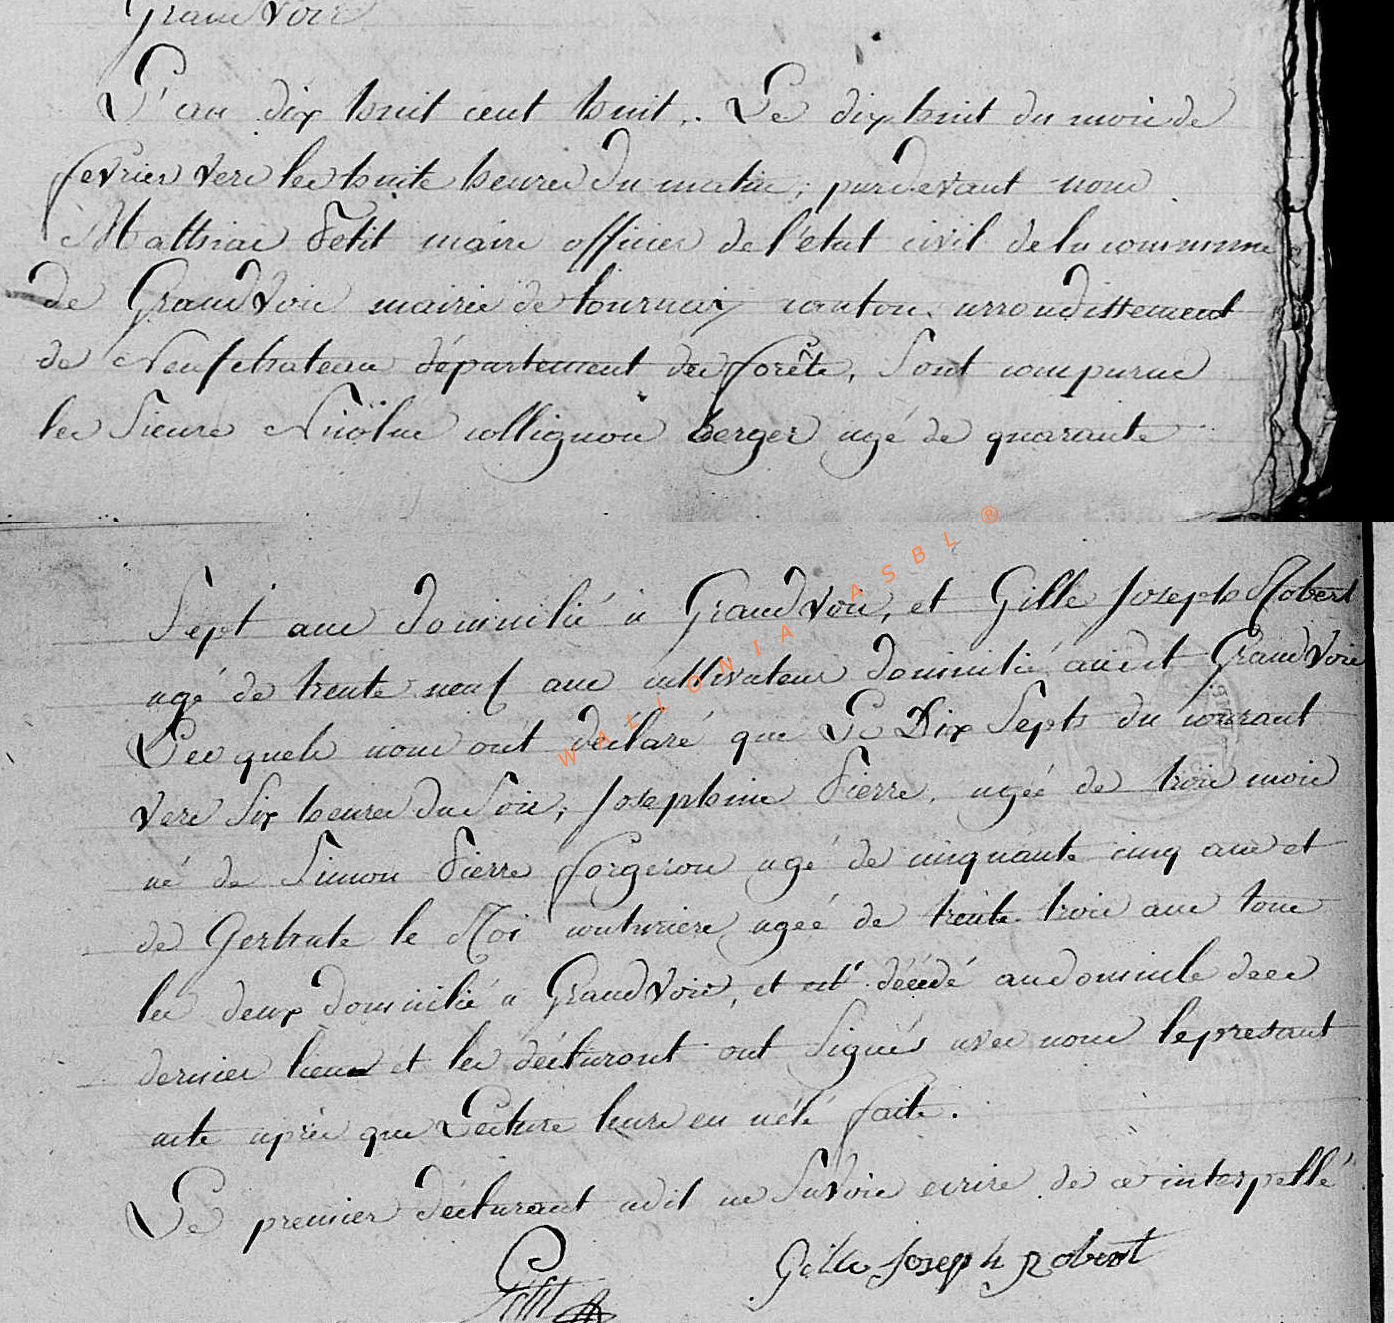 Grand Voir
L'an dix huit cent huit. Le dix huit du mois de
fevrier vers les huite heures du matin, pardevant nous
Mathias Petit maire officier de l'état civil de la commune
de Grand Voir mairie de tournay canton, arrondissement
de Neufchateau département des forête, Sont comparus
les Sieurs Nicolas collignon berger agé de quarante
Sept ans domicilié a Grand Voir, et Gille Joseph Robert
agé de trente neuf ans cultivateur domicilié audit Grand Voir
Les quels nous ont déclaré que Le Dix Sept du courant
vers Six heures du Soir, Josephine Pierre, agéé de trois mois
né de Simon Pierre forgeron agé de cinquante cinq ans et
de Gertrute le Roi couturiere, agéé de trente trois ans tous
les deux domicilié a Grand Voir, et est décédé au domicile de ce
dernier lieu et les déclarant ont Signés avec nous le presant
acte après que Lecture leurs en a été faite.
Le premier déclarant a dit ne Savoir ecrire de ce interpellé
Petit
Gille Joseph Robert
WALLONIA ASBL ®